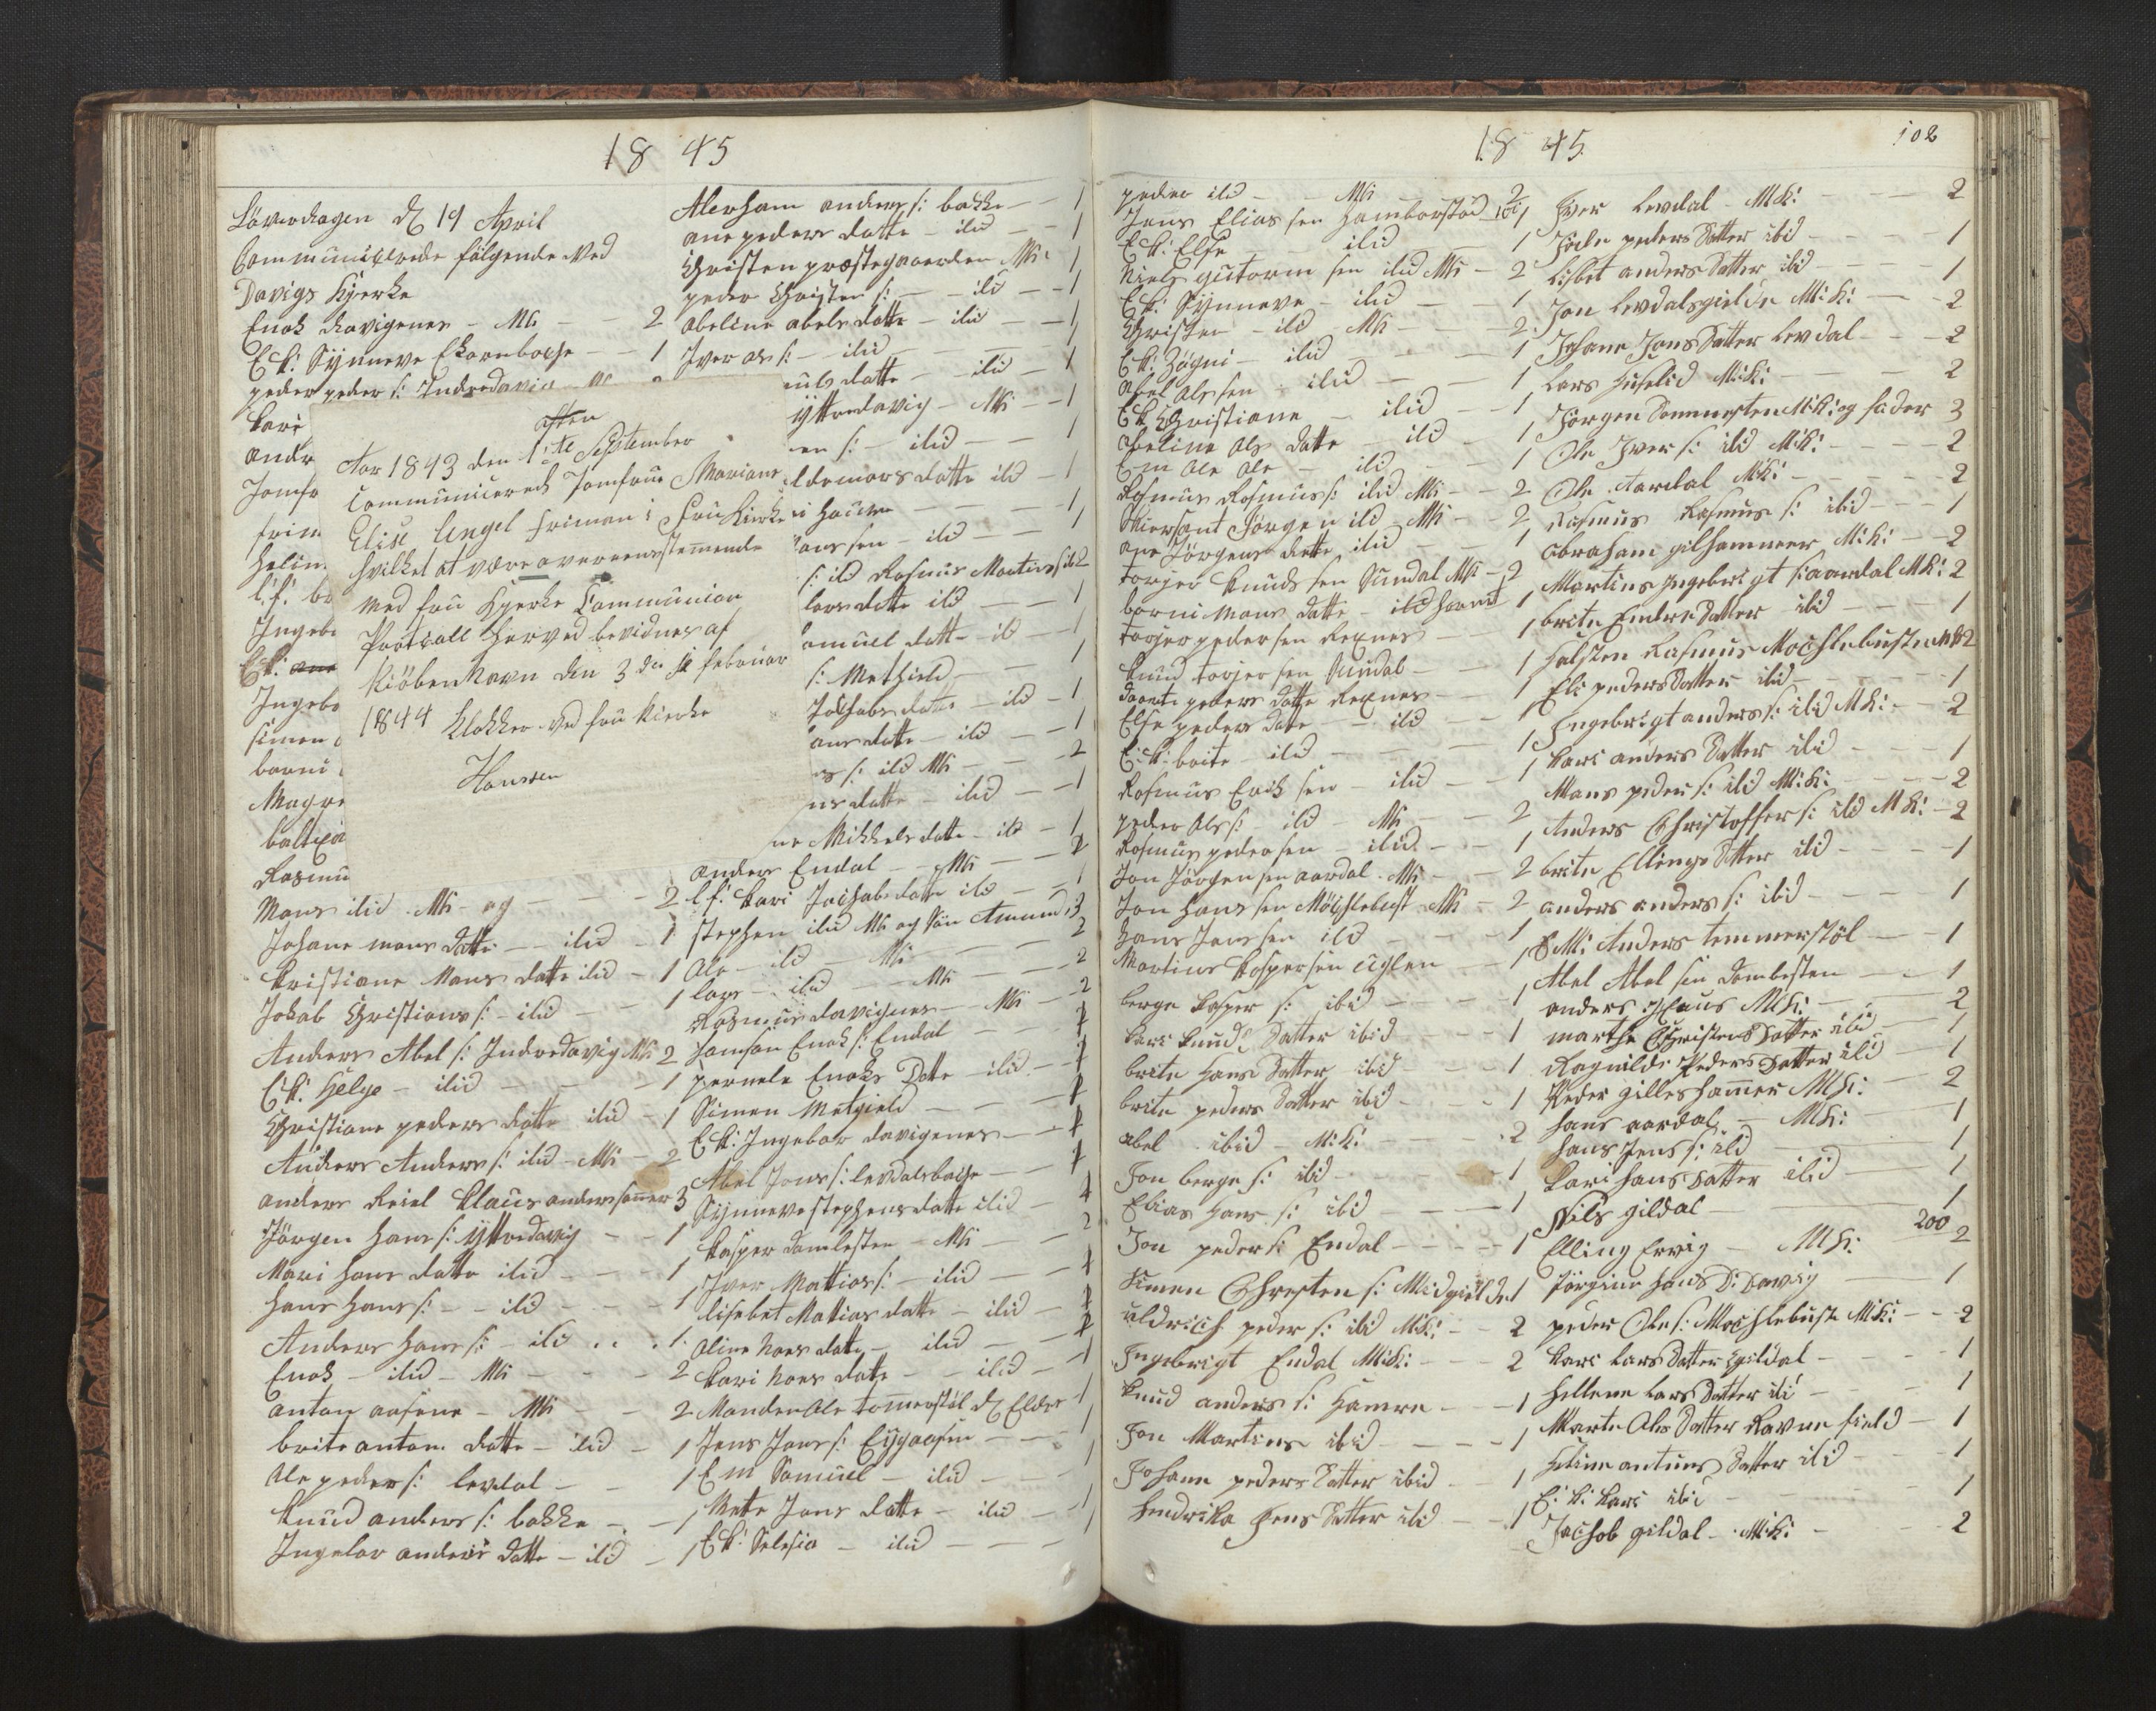 18 45
Löverdagen d 19 April
Communicerede fölgende Ved
Davigs Kjerke
Enok davigenes - Mk - 2
E k: Synneve Ekornboche - 1
peder peder s: Indredavig
Kari
andr
Jomfr
frim
Helin
l: f: br
Ingeb
E k: ane
Ingeb
simen
borni
Magre
baltza
Rasmu
Mons ibid Mk og - 2
Johane mons datte - ibid - 1
Kristiane Mons datte ibid - 1
Jokab Christians s: - ibid - 1
Anders Abel s: Indredavig Mk 2
E k: Helge - ibid - 1
Christiane peders datte ibid - 1
Anders Anders s: ibid - Mk - 2
anders Reiel Klaus anders sønner 3
Jörgen Hans s: Yttredavig - 1
Mari Hans datte ibid - 1
Hans Hans s: - ibid - 1
Anders Hans s: - ibid - 1
Enok - ibid - Mk - 2
anton aasene - Mk - 2
brite anton datte - ibid - 1
Ole peders s: levdal - 1
Knud anders s: bakke - 1
Ingebor anders datte - ibid - 1
aften
Aar 1843 den 1ste September
Communicerede Jomfrue Mariane
Elise Engel Friman i Frue Kirke
hvilket at være overeensstemmende
med frue Kjerke Communion
Protocoll herved bevidnes af
Kiöbenhavn den 3 die februar
1844 Klokker ved frue Kirke
Hanssen
Abraham anders s: bakke - 1
ane peders datte - ibid - 1
Christen præstegaarden Mk 1
peder Christen s: - ibid - 1
Abeline abels datte - ibid - 1
Iver ols s: - ibid - 1
datte - ibid - 1
Yttredavig - Mk - 1
en s: - ibid - 1
ldemors datte ibid - 1
Hansen - ibid - 1
s: ibid Rasmus Martins s ibid 2
lars datte ibid - 1
amuel datte ib - 1
s: Metgield - 1
Jachobs datte - ibid - 1
ans datte - ibid - 1
s: ibid Mk - 2
ns datte - ibid - 1
ne Mikkels datte - ibid - 1
anders Endal - Mk - 2
l: f: Kari Jachobs datte ibid - 1
Stephen ibid Mk og sön Amund 3
Ole - ibid - Mk - 2
lars - ibid - Mk - 2
Rasmus davignes - Mk - 2
Samson Enok s: Endal - 1
pernele Enoks Datte - ibid - 1
Simen Metgield - 1
E k: Ingebor davigenes - 1
Abel Jons s: levdalsboche - 1
Synneve Stephens datte ibid - 1
Kasper damlesten - Mk - 2
Iver Mattias s: - ibid - 1
lisebet Matias datte - ibid - 1
Oline Noes datte - ibid - 1
Kari Noes datte - ibid - 1
Manden Ole tömmerstöl d Elder 1
Jens Jons s: Eygaasen - 1
E m Samuel - ibid - 1
Mete Jans datte - ibid - 1
E k: Selesia - ibid - 1
18 45
102
peder ibid - Mk 2
Jens Elias sen Hamborstad 1
E k: Else ibid 1
Niels gutorm sen ibid Mk - 2
E k: Synneve - ibid - 1
Christen - ibid Mk - 2
E k: Zögni - ibid - 1
Abel Ols sen - ibid - 1
E k Christiane - ibid - 1
Abeline Ols datte - ibid 1
E m Ole Ole - ibid - 1
Rasmus Rasmus s: ibid Mk - 2
Jörgen ibid Mk - 2
ane Jörgens datte ibid 1
torger Knuds sen Sundal Mk - 2
borni Mons datte - ibid 1
torger peder sen Rexnes - 1
Knud torger sen Sundal - 1
dorete peders datte Rexnes - 1
Else peders datte - ibid - 1
E: k: brite - ibid - 1
Rasmus Erik sen - ibid - 1
peder Ols s: ibid - Mk - 2
Rasmus peder sen - ibid - 1
Jon Jörgen sen aardal - Mk - 2
Jon Hans sen Möchlebust Mk - 2
Hans Jons sen ibid - 1
Martinus Kasper sen Uglen - 1
berge Kasper s: ibid - 1
Kari Knuds Datter ibid - 1
brite Hans Datter ibid - 1
brite peders Datter ibid - 1
abel ibid - M: k: - 2
Jon berge s: ibid - 1
Elias Hans s: ibid - 1
Jon peder s: Endal - 1
Simen Chresten s: Midgielde 1
uldrich peder s: ibid M: k: - 2
Ingebrigt Endal M: k: - 2
Knud anders s: Hamre - 1
Jon Martins ibid - 1
Johane peders Datter ibid - 1
Hendrika Jens Datter ibid - 1
Iver Levdal - M: k: - 2
Jöde peders Datter ibid - 1
Lisbet anders Datter ibid - 1
Jon Levdalsgielde M: k: - 2
Johane Jons Datter Levdal - 2
Lars Huselid M: k: - 2
Jörgen Dommesten M: k: og fader 3
Ole Iver s: ibid M: k: - 2
Ole Aardal M: k: - 2
Rasmus Rasmus s: ibid - 1
Abraham gilhammer M: k: - 2
Martins Ingebrigt s: aardal M k: 2
brite Endre Datter ibid - 1
Halsten Rasmus Mochlebuste M k 2
Eli peders Datter ibid - 1
Engebrigt anders s: ibid M k: - 2
Kari anders Datter ibid - 1
Mons peder s: ibid M: k: - 2
Anders Christoffer s: ibid M k: - 2
brite Ellings Datter ibid - 1
anders anders s: ibid - 1
E M: Anders temmerstöl - 1
Abel Abel sen Dombesten - 1
anders M: k: - 2
marthe Christens Datter ibid - 1
Ragnilde Peders Datter ibid - 1
Peder gilleshammer M k: - 2
Hans aardal - M k: 1
Hans Jens s: ibid - 1
Kari Hans Datter ibid - 1
Nils gildal - 1
200
Elling Ervig - M k: 2
Jörgine Hans D: Davig - 1
peder Ole s: Mochlebuste M: k: - 2
Kari Lars Datter gildal - 1
Hellene Lars Datter ibi - 1
Marte Ols Datter Ravnefield - 1
Heline antuns Datter ibid - 1
E: k: Kari ibi - 1
Jachob gildal - M: k: - 2